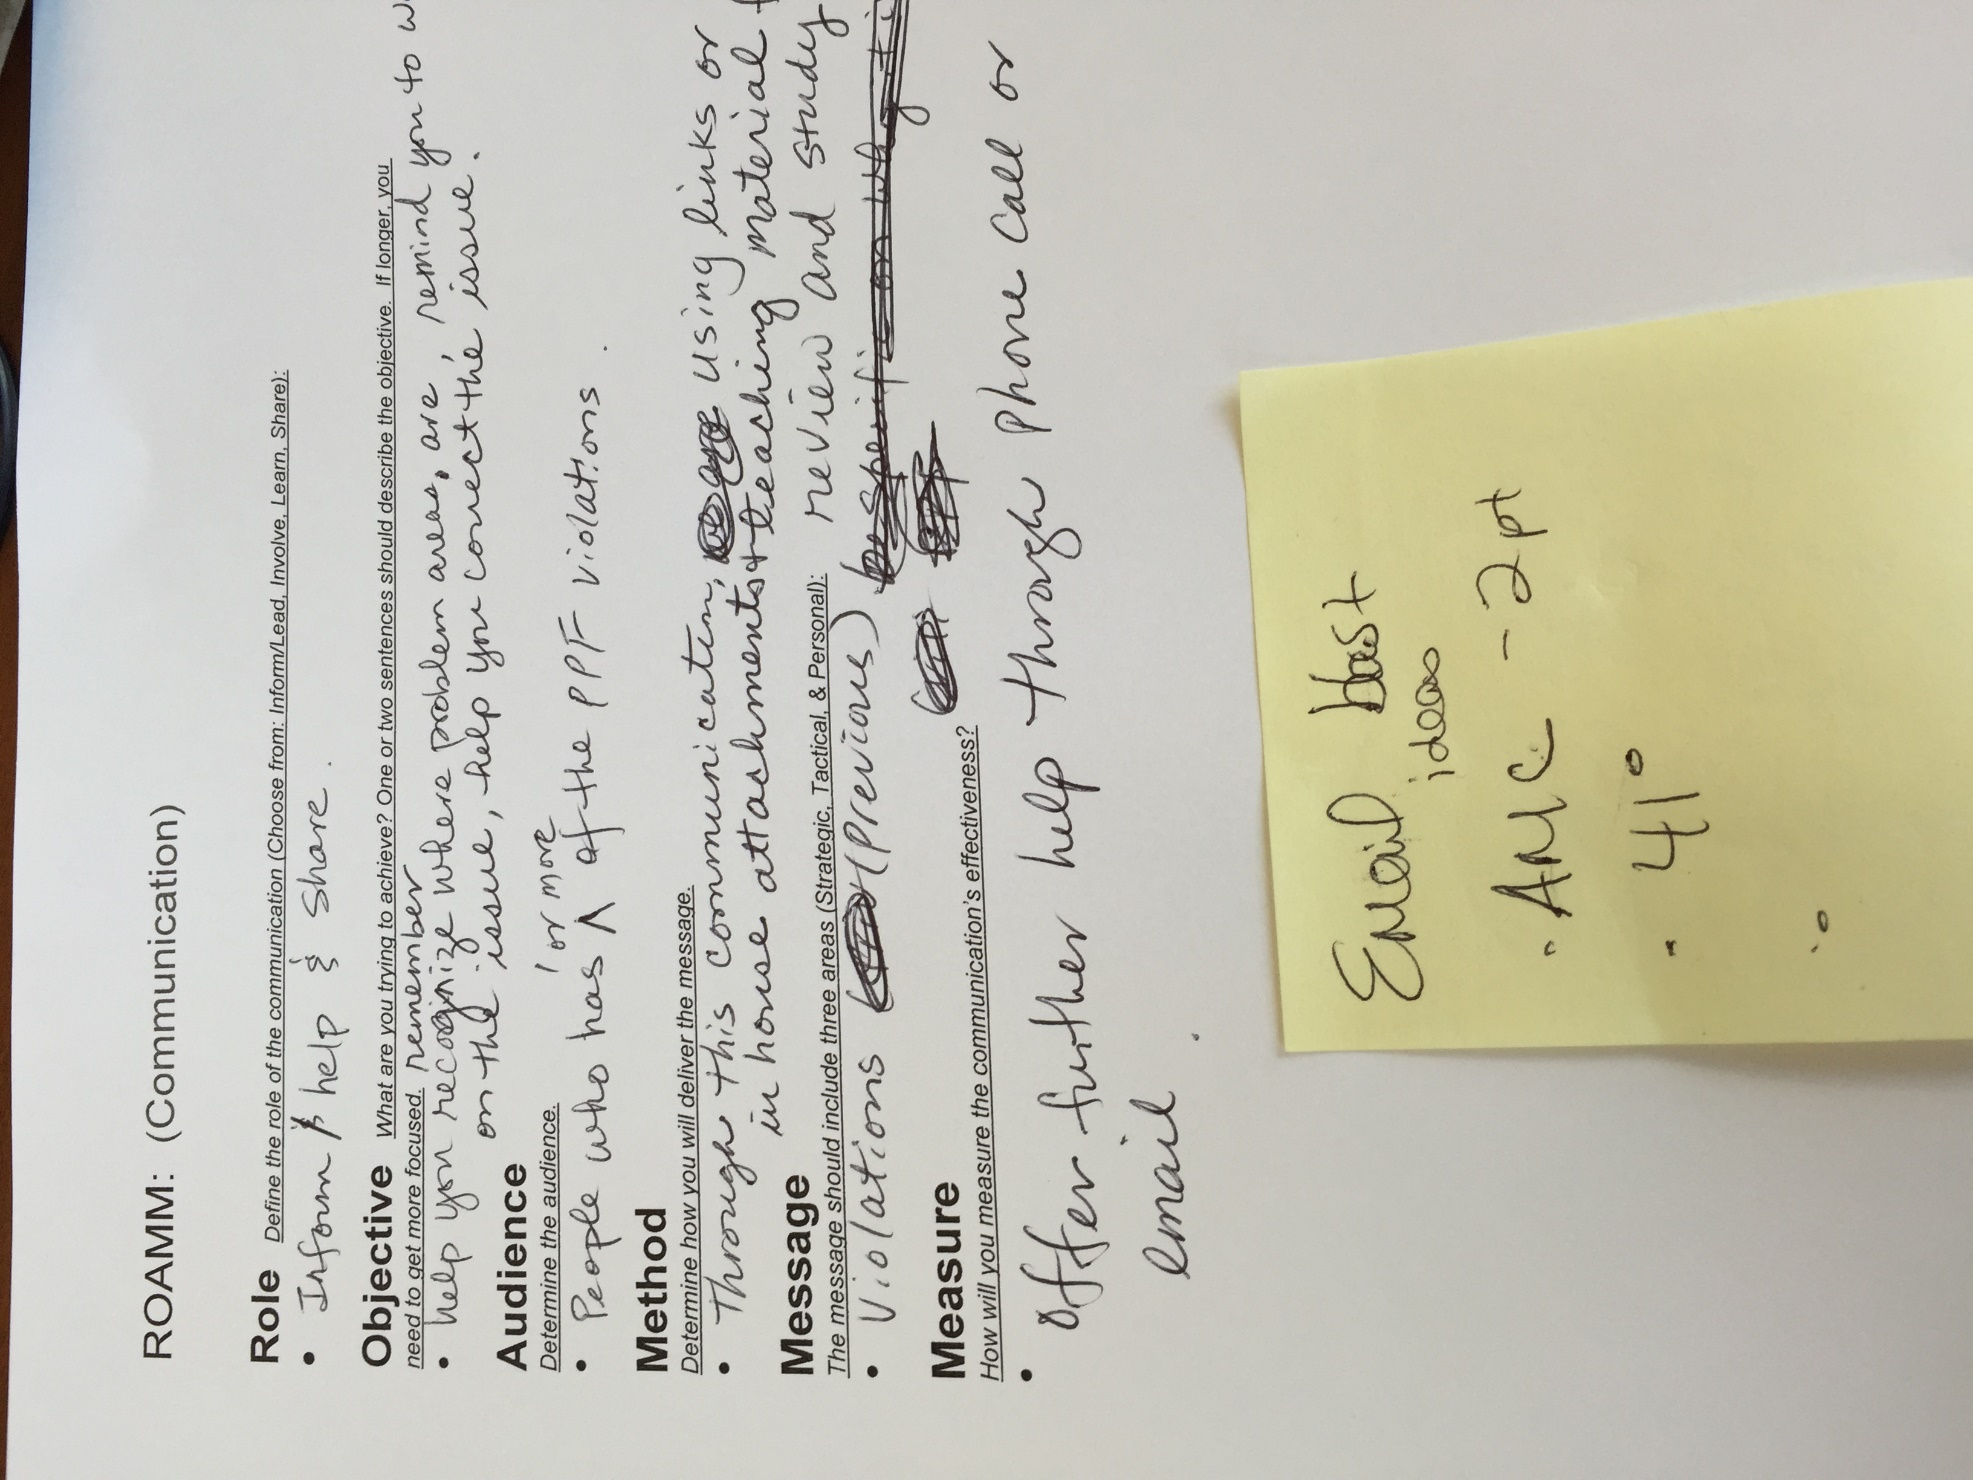 ROAMM: (Communication)
Role Define the role of the communication (Choose from: Inform/Lead, Involve, Learn, Share):
• Inform help & share.
Objective What are you trying to achieve? One or two sentences should describe the objective. If longer, you
need to get more focused. remember
• help you recognize where problem areas, are, remind you to
on the issue, help you correct the issue.
Audience
Determine the audience. 'or more
• People who has ^ of the PPF violations.
Method
Determine how you will deliver the message.
• Through this communication, using links or
in house attachments + teaching material
Message
The message should include three areas (Strategic, Tactical, & Personal): review and study
• Violations (Previous)
Measure
How will you measure the communication's effectiveness?
• offer further help through phone call or
email
Email blast
ideas
• ANC - 2pt
• 41°